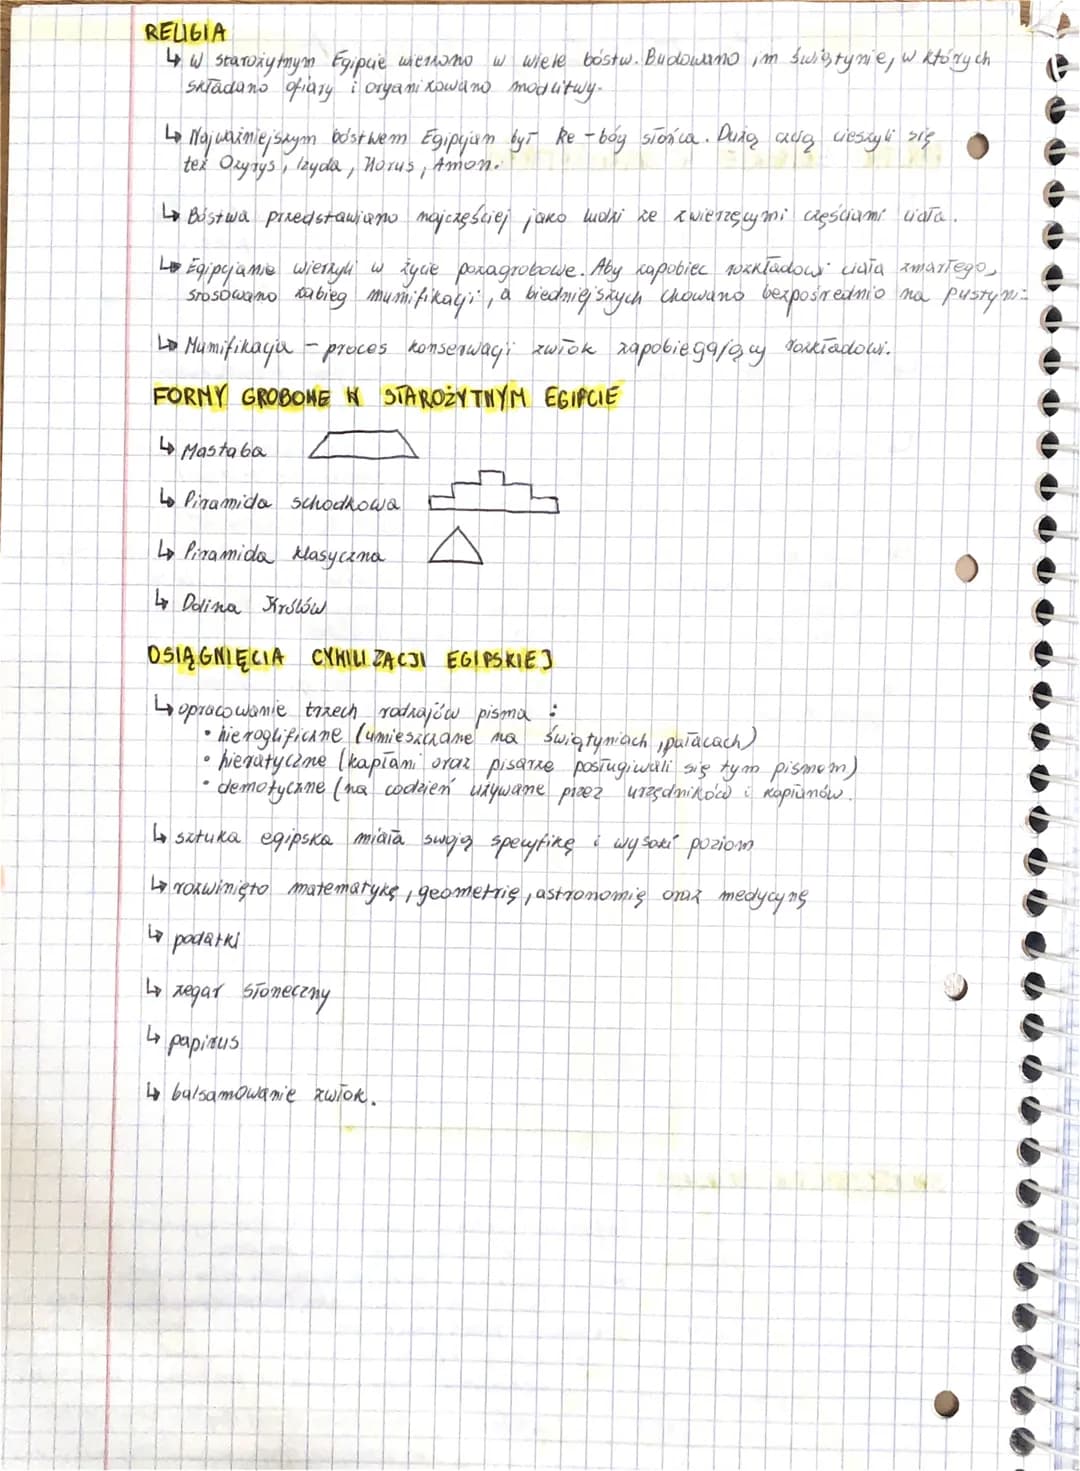 RELIGIA
↳ W starożytnym Egipcie wierzono w wiele bóstw. Budowano im świątynie, w których
składano ofiary i organizowano modlitwy.
↳ Najważniejszym bóstwem Egipcjan był Re - bóg słońca. Dużą czcią cieszyli się
też Ozyrys, Izyda, Horus, Amon.
↳ Bóstwa przedstawiano najczęściej jako ludzi ze zwierzęcymi częściami ciała.
↳ Egipcjanie wierzyli w życie pozagrobowe. Aby zapobiec rozkładowi ciała zmarłego,
stosowano zabieg mumifikacji, a biedniejszych chowano bezpośrednio na pustyni
↳ Mumifikacja - proces konserwacji zwłok zapobiegający rozkładowi.
FORMY GROBOWE W STAROŻYTNYM EGIPCIE
↳ Mastaba
↳ Piramida schodkowa
↳ Piramida klasyczna
↳ Dolina Królów
OSIĄGNIĘCIA CYWILIZACJI EGIPSKIEJ
↳ opracowanie trzech rodzajów pisma :
• hieroglificzne (umieszczane na świątyniach, pałacach)
• hieratyczne (kapłani oraz pisarze posługiwali się tym pismem)
• demotyczne (na codzień używane przez urzędników i kapłanów.
↳ sztuka egipska miała swoją specyfikę i wysoki poziom
↳ rozwinięto matematykę, geometrię, astronomię oraz medycynę
↳ podatki
↳ zegar słoneczny
↳ papirus
↳ balsamowanie zwłok.